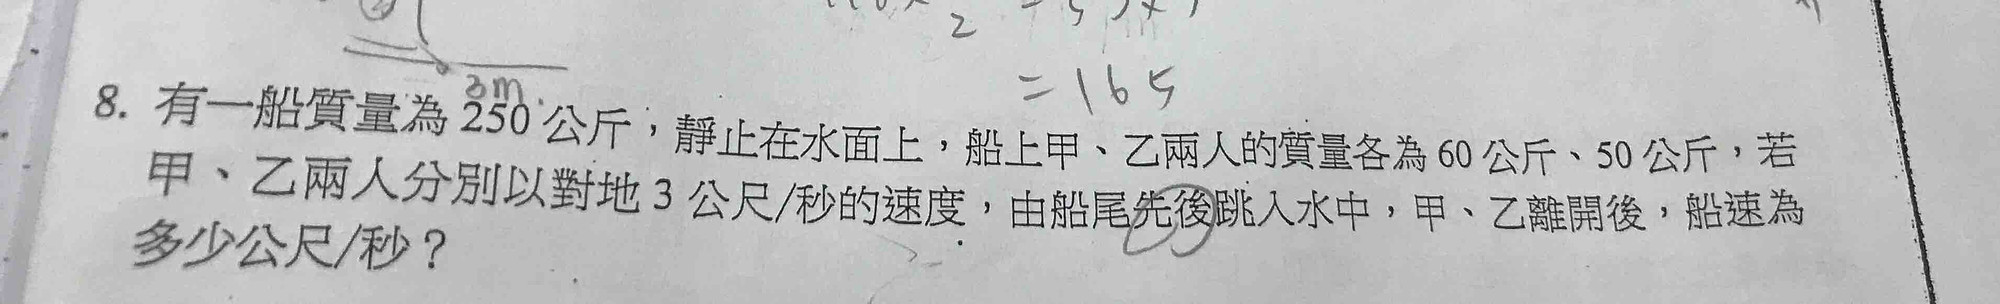 2
3m
= 165
8. 有一船質量為 250 公斤，靜止在水面上，船上甲、乙兩人的質量各為 60 公斤、50 公斤，若
甲、乙兩人分別以對地 3 公尺/秒的速度，由船尾先後跳入水中，甲、乙離開後，船速為
多少公尺/秒？